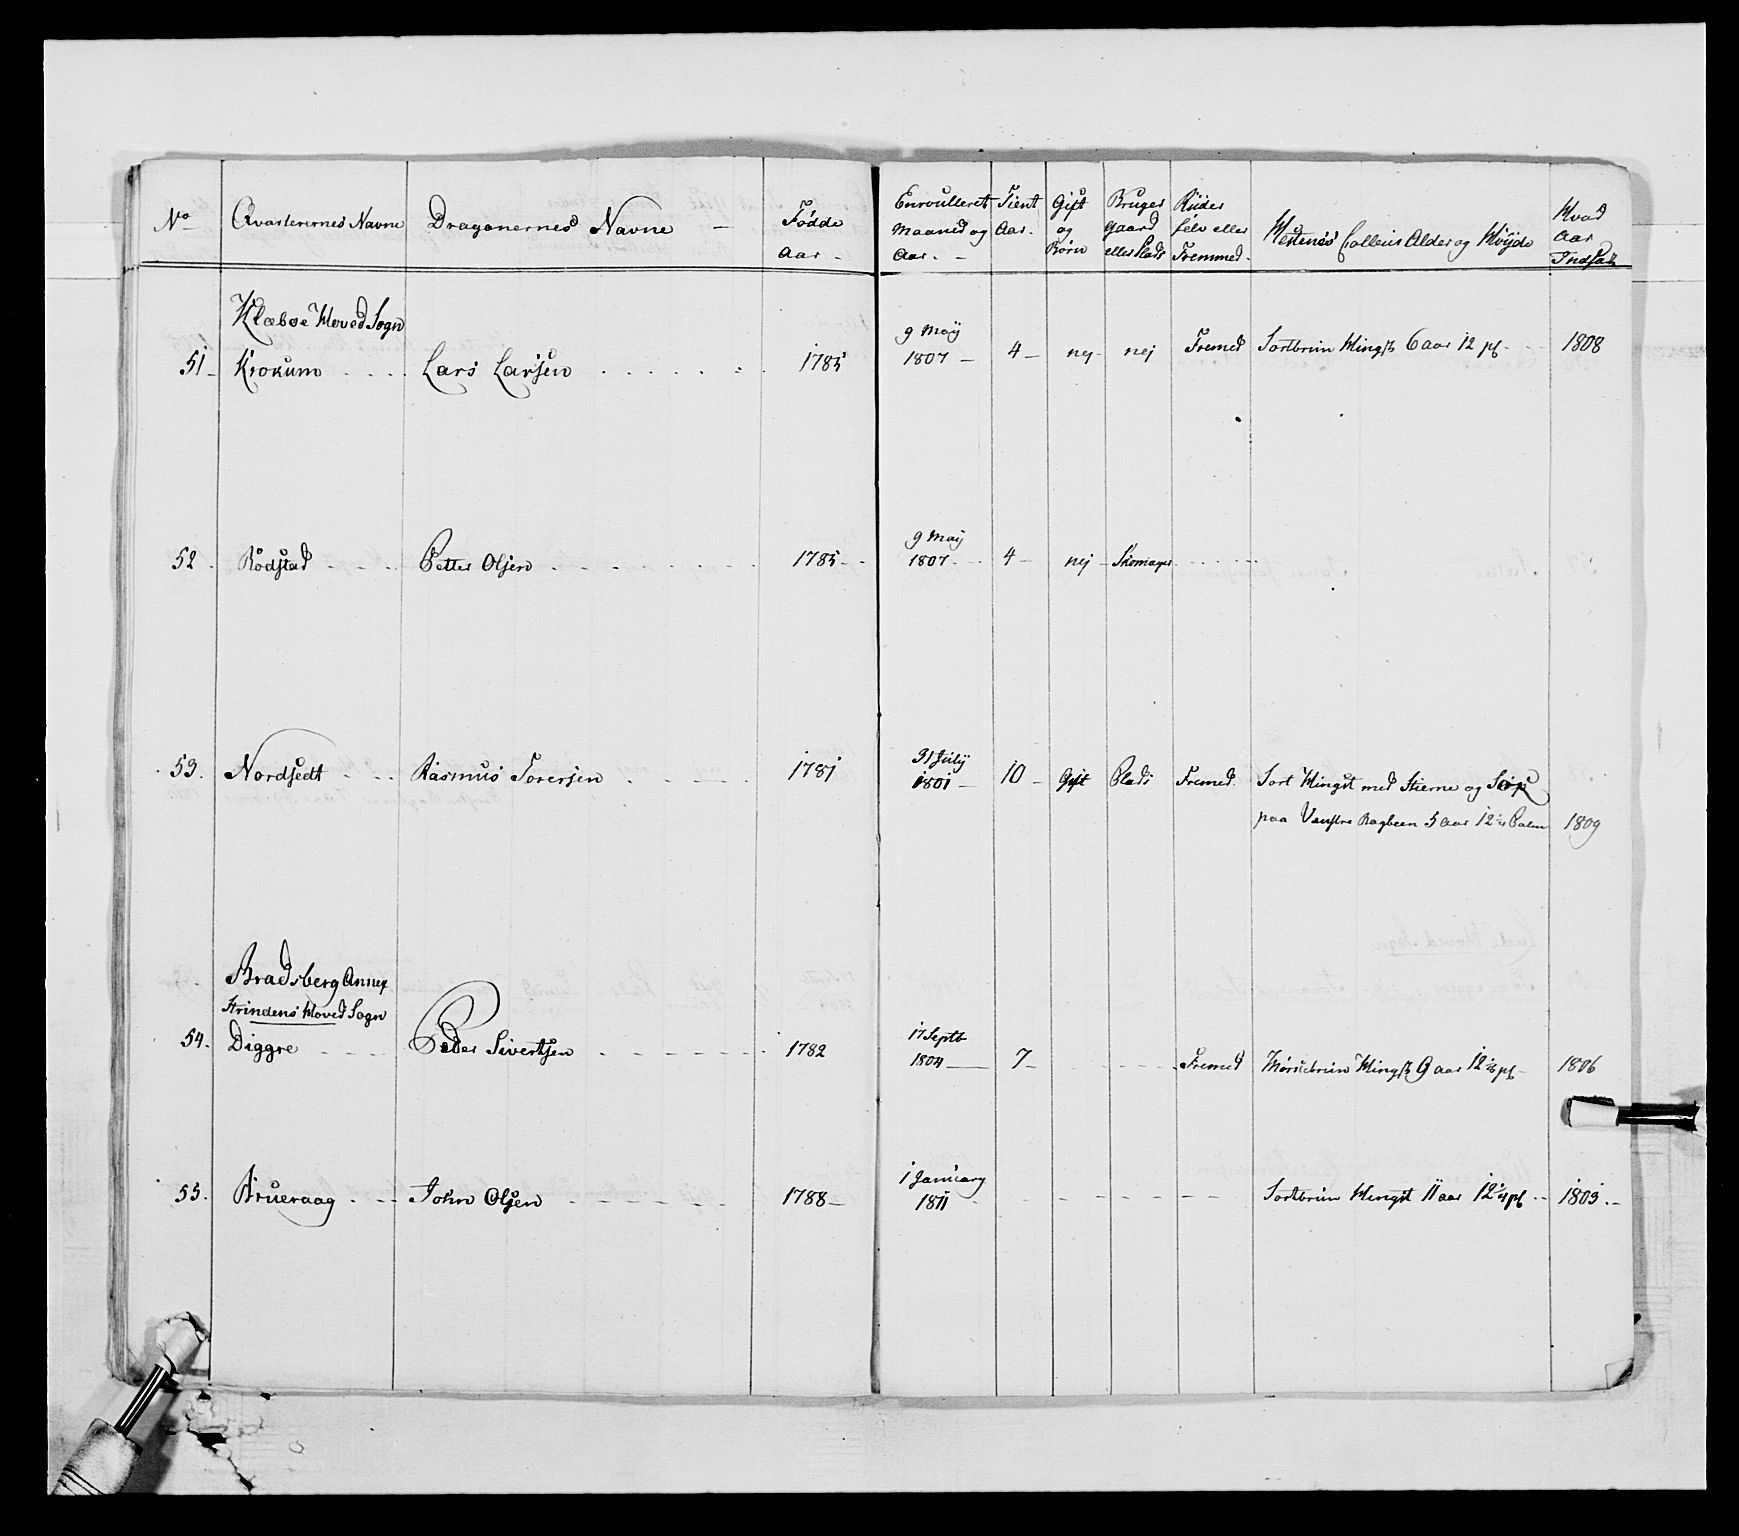 No
Qvarterernes Navne
Dragonernes Navne
Födde
Aar
Enroulleret
Maaned og
Aar
Tient
Aar
Gift
og
Börn
Bruger
Gaard
eller Plads
Riider
selv eller
Fremmed
Hestenes Colleur Alder og Höyde
Hvad
Aar
Indsatt
Klæboe Hoved Sogn
51 Krokum Lars Larsen 1785 9 May 1807 4 nej nej Fremed Sortbrun Hingst 6 aar 12 pl 1808
52 Rödstad Petter Olsen 1785 9 May 1807 4 nej Skomager
53 Nordsedt Rasmus Torersen 1781 31 July 1801 10 Gift Plads Fremed Sort Hingst med Stierne og
paa Venstre Bagbeen 5 aar 12 1/4 Palm 1809
Bradsberg Annex
Strindens Hoved Sogn
54 Diggre Peder Sivertsen 1782 17 Septb 1804 7 Fremed Mörkebrun Hingst 9 aar 12 1/2 pl 1806
55 Brueraag John Olsen 1788 1 January 1811 Sortbrun Hingst 11 aar 12 1/4 pl 1803